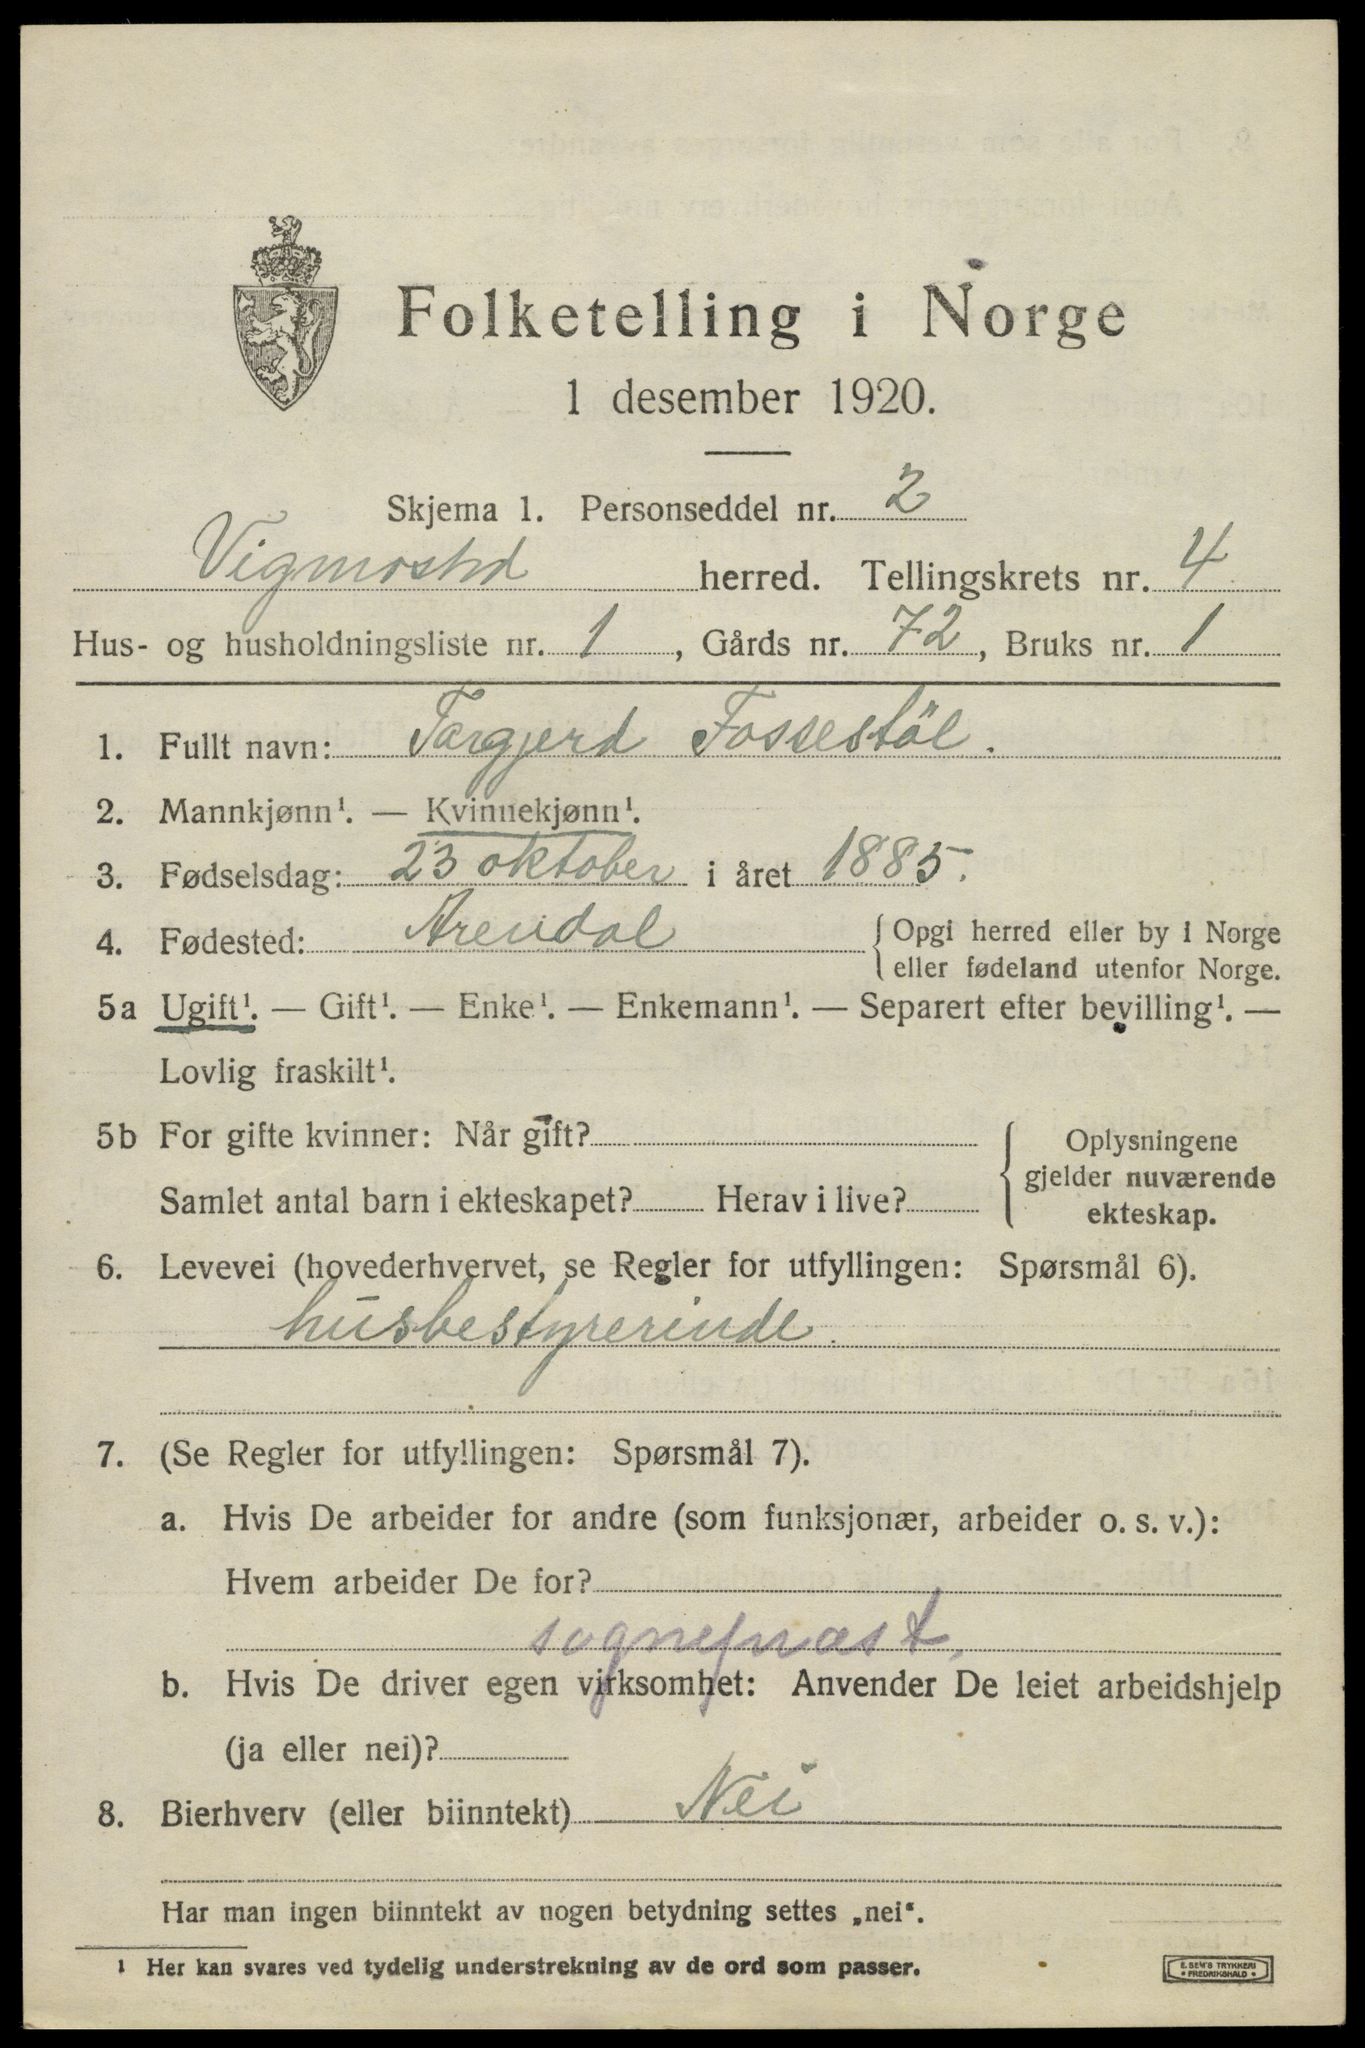 Folketelling i Norge
1 desember 1920.
Skjema 1. Personseddel nr. 2
Vigmostad herred. Tellingskrets nr. 4
Hus- og husholdningsliste nr. 1, Gårds nr. 72, Bruks nr. 1
1. Fullt navn: Torgjerd Fossestöl.
2. Mannkjønn¹. — Kvinnekjønn¹.
3. Fødselsdag: 23 oktober i året 1885.
4. Fødested: Arendal {Opgi herred eller by i Norge
eller fødeland utenfor Norge.
5a Ugift¹. — Gift¹. — Enke¹. — Enkemann¹. — Separert efter bevilling¹. —
Lovlig fraskilt¹.
5b For gifte kvinner: Når gift?
Samlet antal barn i ekteskapet? Herav i live?
{Oplysningene
gjelder nuværende
ekteskap.
6. Levevei (hovederhvervet, se Regler for utfyllingen: Spørsmål 6).
husbestyrerinde.
7. (Se Regler for utfyllingen: Spørsmål 7).
a. Hvis De arbeider for andre (som funksjonær, arbeider o. s. v.):
Hvem arbeider De for?
sogneprest.
b. Hvis De driver egen virksomhet: Anvender De leiet arbeidshjelp
(ja eller nei)?
8. Bierhverv (eller biinntekt) Nei
Har man ingen biinntekt av nogen betydning settes „nei“.
¹ Her kan svares ved tydelig understrekning av de ord som passer.
E. SEM'S TRYKKERI
• FREDRIKSHALD •